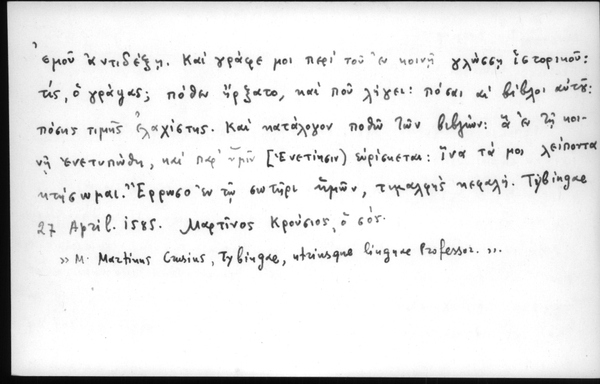 ἐμοῦ ἀντιδέξῃ. Καὶ γράφε μοι περὶ τοῦ ἐν κοινῇ γλώσσῃ ἱστορικοῦ:
τίς, ὁ γράψας; πόθεν ἤρξατο, καὶ ποῦ λήγει: πόσαι αἱ βίβλοι αὐτοῦ:
πόσης τιμῆς ἐλαχίστης. Καὶ κατάλογον ποθῶ τῶν βιβλίων: ἃ ἐν τῇ κοι-
νῇ ἐνετυπώθη, καὶ παρ' ὑμῖν [Ἐνετίησιν) εὑρίσκεται: ἵνα τά μοι λείποντα
κτήσωμαι. Ἔρρωσο ἐν τῷ σωτῆρι ἡμῶν, τιμαλφὴς κεφαλή. Tybingae
27 April. 1585. Μαρτῖνος Κρούσιος, ὁ σός.
» M. Martinus Crusius, Tybingae, utriusque linguae Professor. ».